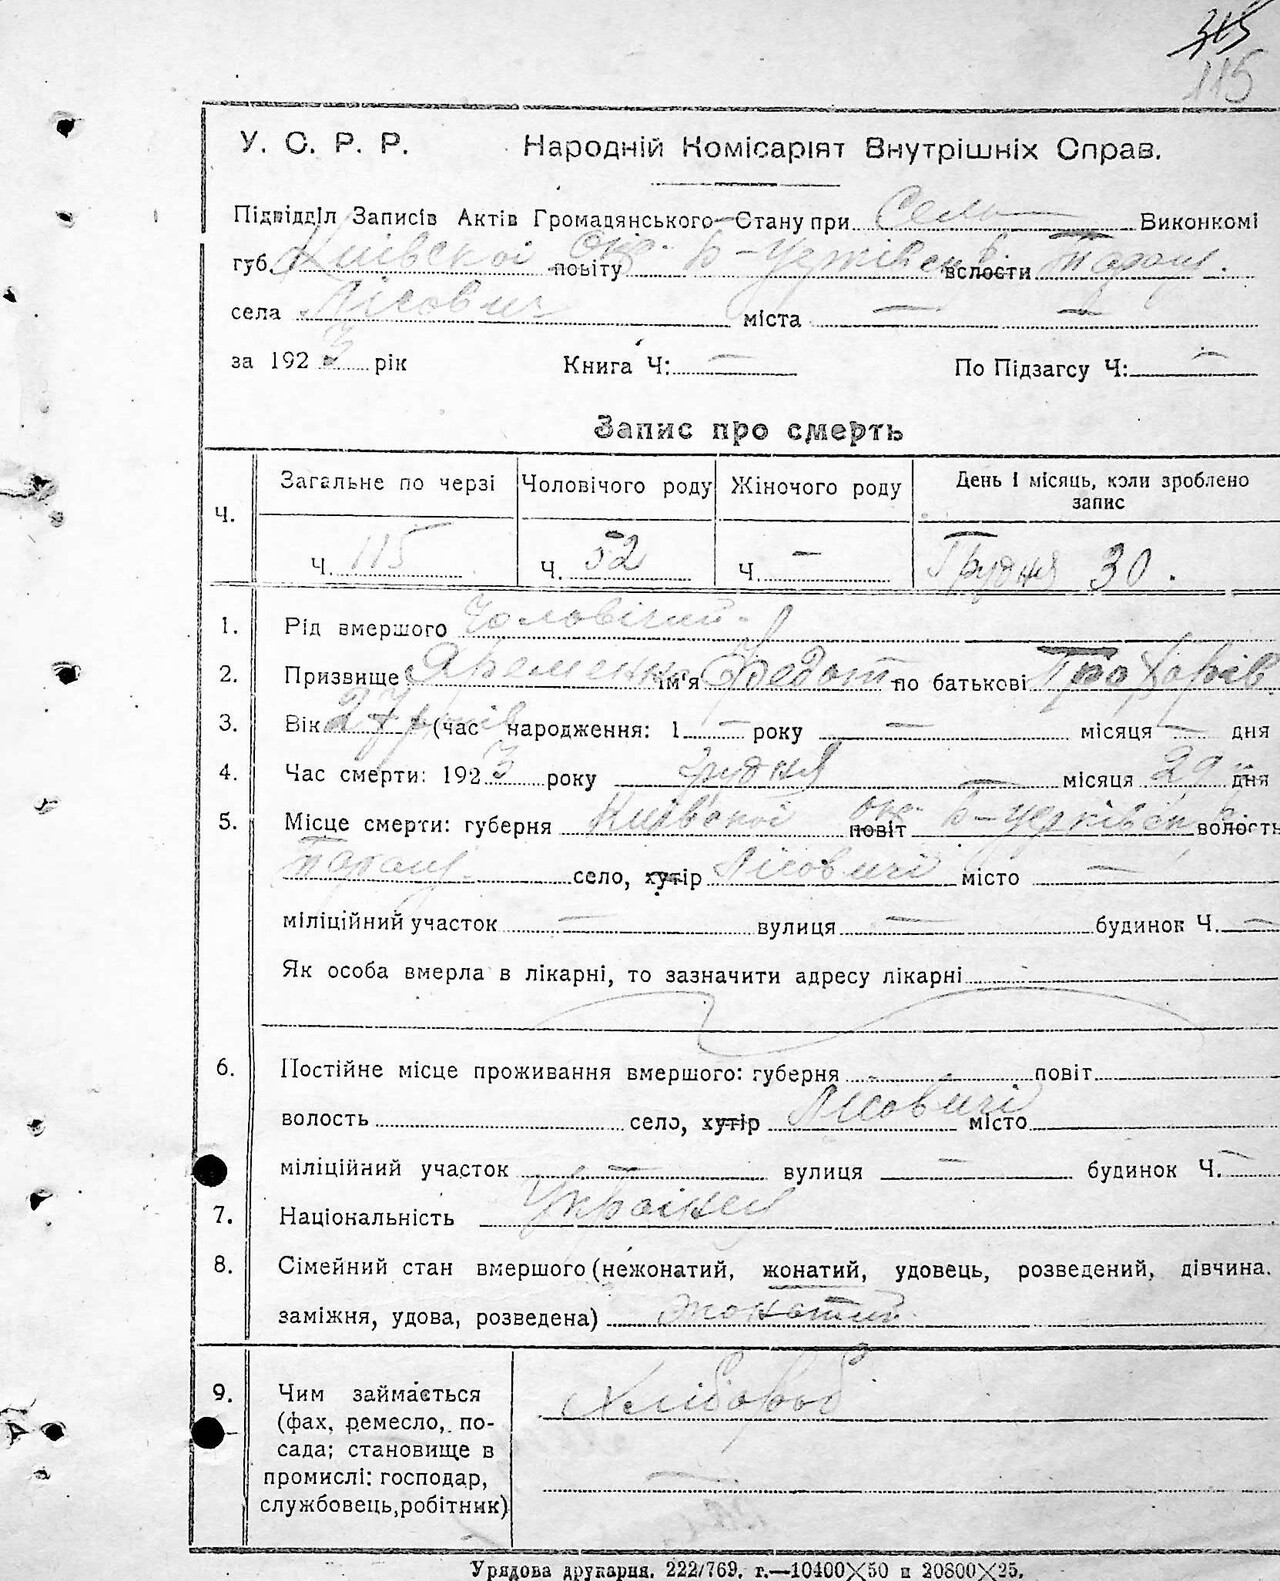 315
115
У. С. Р. Р. Народній Комісаріят Внутрішніх Справ.
Підвідділ Записів Актів Громадянського Стану при Сель Виконкомі
губ. Київської повіту окр. Б-Церківськ вслости Таращ.
села Лісович міста — —
за 1923 рік Книга Ч: — По Підзагсу Ч: —
Запис про смерть
Ч. Загальне по черзі Чоловічого роду Жіночого роду День і місяць, коли зроблено
запис
Ч. 115 Ч. 52 Ч. — Грудня 30.
1. Рід вмершого Чоловічий
2. Призвище Яременко ім'я Федот по батькові
3. Вік 27 років (час народження: 1 — року — місяця — дня
4. Час смерти: 1923 року грудня — місяця 29 дня
5. Місце смерти: губерня Київської повіт окр. Б-Церківськ волость
Таращ. село, хутір Лісовичі місто —
міліційний участок — вулиця — будинок Ч. —
Як особа вмерла в лікарні, то зазначити адресу лікарні
6. Постійне місце проживання вмершого: губерня повіт
волость село, хутір Лісовичі місто
міліційний участок — вулиця — будинок Ч. —
7. Національність Українец
8. Сімейний стан вмершого (нежонатий, жонатий, удовець, розведений, дівчина,
заміжня, удова, розведена) жонатий
9. Чим займається Хлібороб
(фах, ремесло, по-
сада; становище в
промислі: господар, —
службовець, робітник)
Урядова друкарня. 222/769. г.—10400×50 и 20800×25.